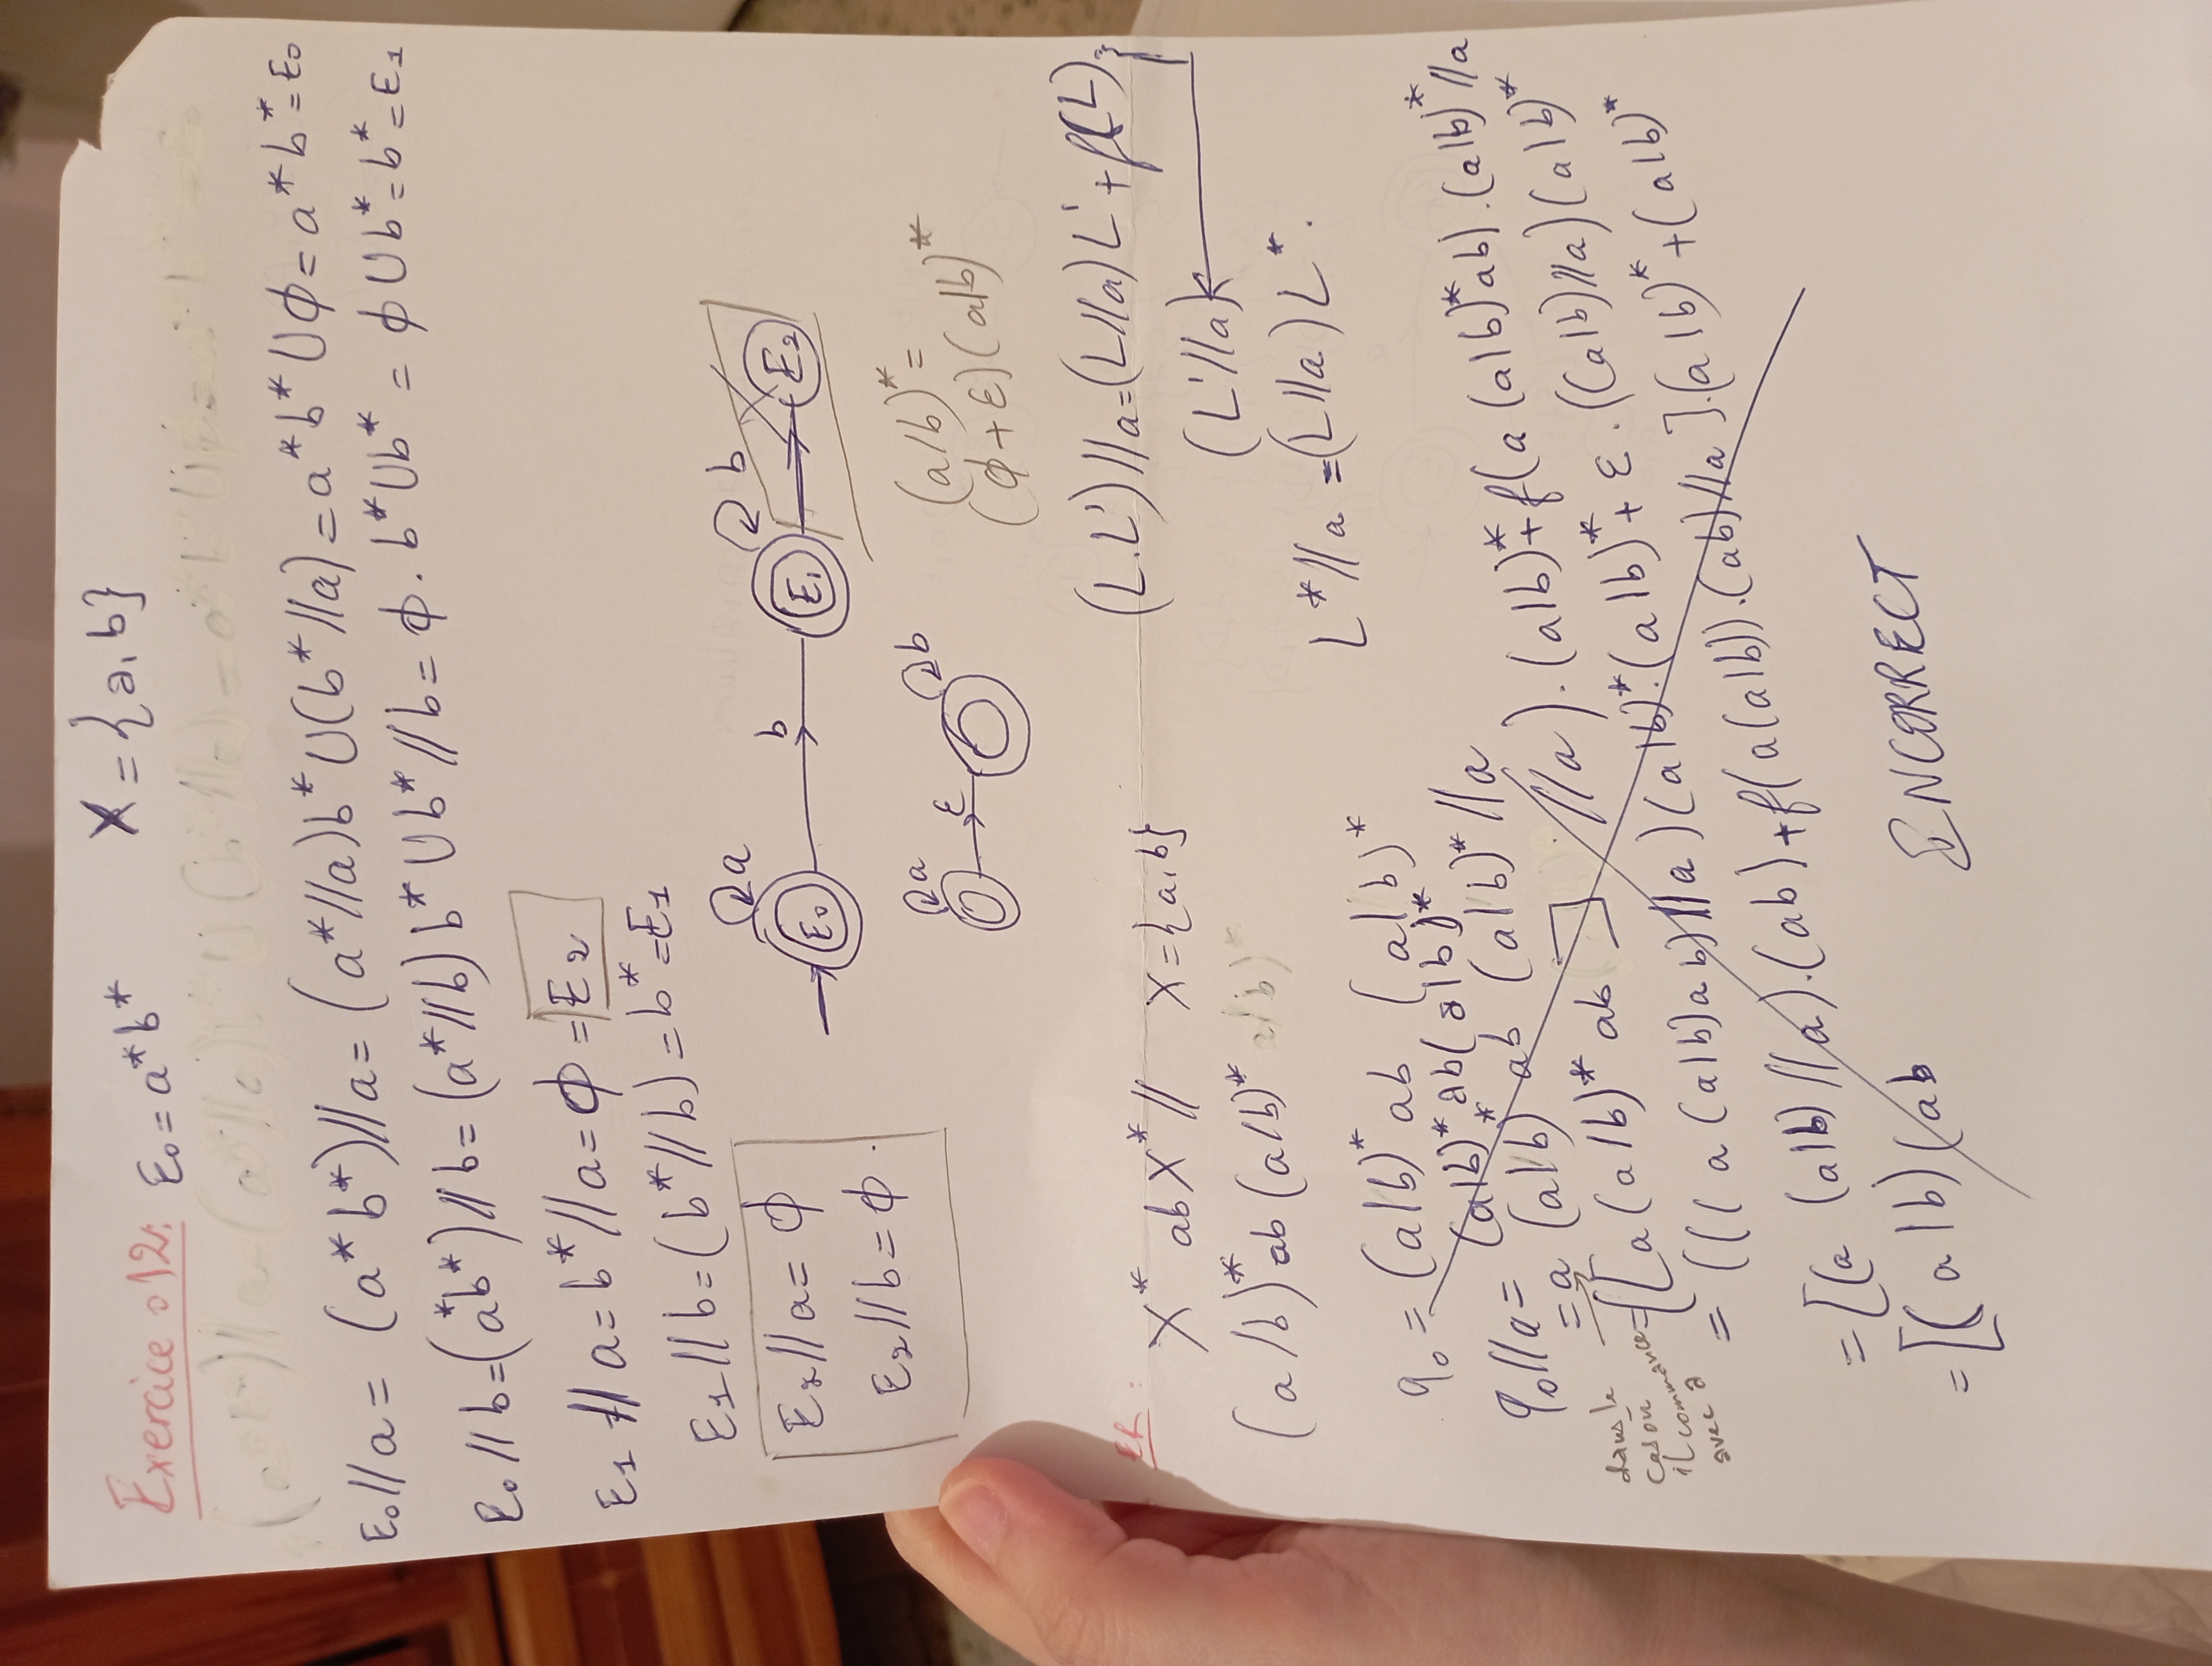 Exercice 012: E₀ = a*b* X = {a, b}
E₀//a = (a*b*)//a = (a*//a)b* U (b*//a) = a*b* U ϕ = a*b* = E₀
E₀//b = (a*b*)//b = (a*//b) b* U b*//b = ϕ. b* U b* = ϕ U b* = b* = E₁
E₁ // a = b*//a = ϕ = E₂
E₁//b = (b*//b) = b* = E₁
E₂//a = ϕ
E₂//b = ϕ.
a b b
E₀ E₁ E₂
a ε b
(a/b)* =
(ϕ + ε)(a|b)*
(L.L')//a = (L//a) L' + f(L).
(L'//a)
L*//a = (L//a) L*.
ER:
X* ab X* // X = {a, b}
(a/b)* ab (a/b)* a/b)*
q₀ = (a|b)* ab (a|b)*
q₀//a = (a|b)* ab (a|b)*
= a (a|b)* ab (a|b)* //a
dans le
cas où
il commance
avec a
= ([a (a/b)* ab] //a). (a|b)* + f(a (a|b)* ab). (a|b)* //a
= (((a (a|b) ab) //a) (a|b)*. (a|b)* + ε. ((a|b)//a) (a|b)*
= [(a (a|b) //a). (ab) + f(a(a|b)). (ab)//a]. (a|b)* + (a|b)*
= [(a|b) (ab
INCORRECT